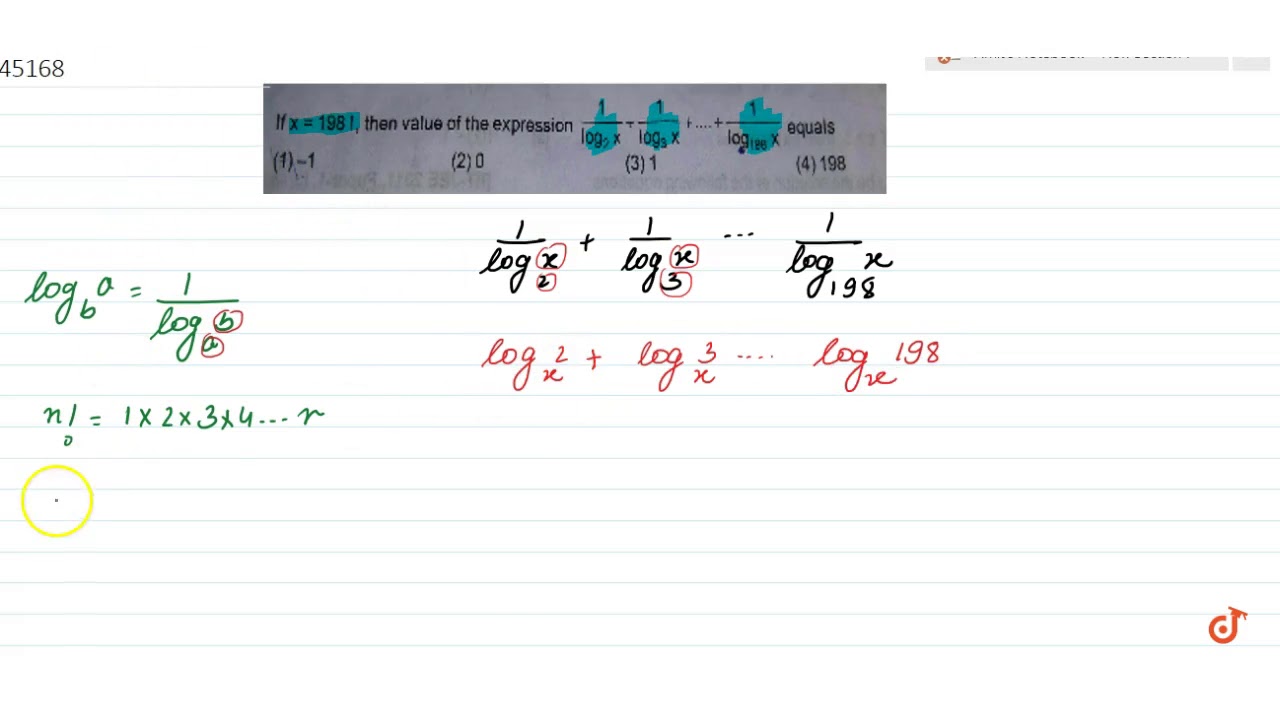 45168
If x = 198 !, then value of the expression 1/log₂ x + 1/log₃ x + .... + 1/log₁₉₈ x equals
(1) –1 (2) 0 (3) 1 (4) 198
1/log₂ x + 1/log₃ x ... 1/log₁₉₈ x
log_b a = 1/log_a b
log_x 2 + log_x 3 .... log_x 198
n! = 1 × 2 × 3 × 4 ... n